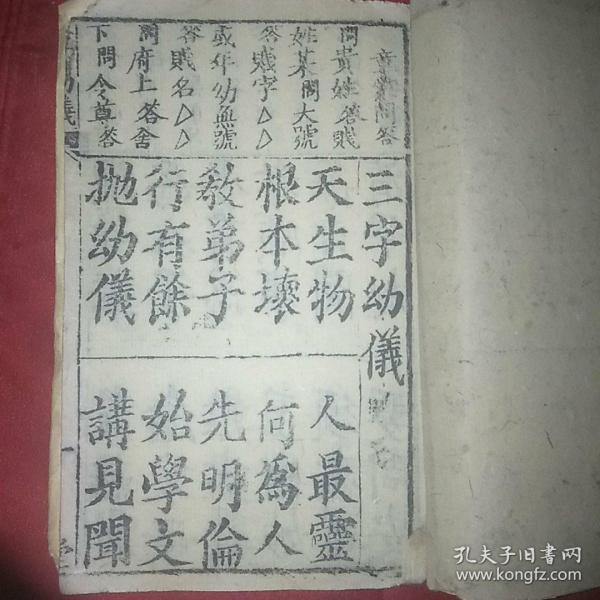 童蒙問答
問貴姓答賤
姓某問大號
答賤字厶厶
或年幼無號
答賤名厶厶
問府上答舍
下問令尊答
三字幼儀
天生物
人最靈
根本壞
何為人
教弟子
先明倫
行有餘
始學文
抛幼儀
講見聞
孔夫子旧书网
www.kongfz.com